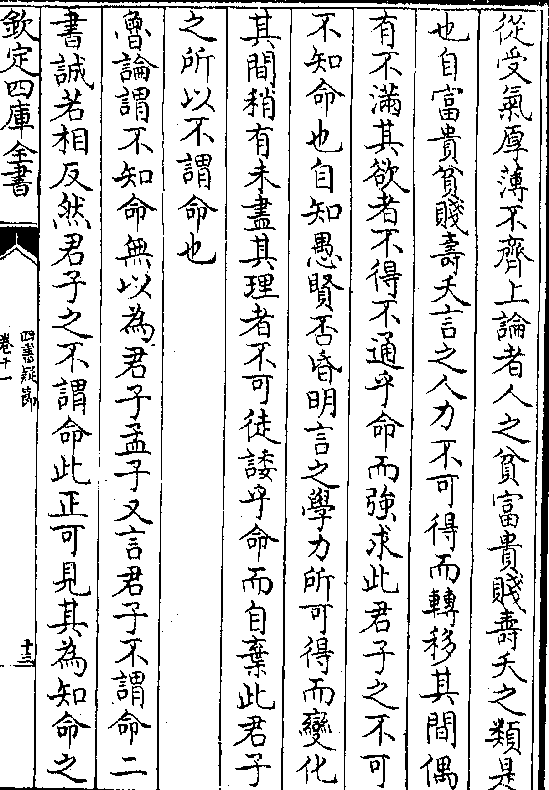 從受氣厚薄不齊上論者人之貧富貴賤壽夭之類是
也自富貴貧賤壽夭言之人力不可得而轉移其間偶
有不滿其欲者不得不通乎命而強求此君子之不可
不知命也自知愚賢否昏明言之學力所可得而變化
其間稍有未盡其理者不可徒諉乎命而自棄此君子
之所以不謂命也
魯論謂不知命無以為君子孟子又言君子不謂命二
書誠若相反然君子之不謂命此正可見其為知命之
欽定四庫全書
四書疑節
卷十一
十三